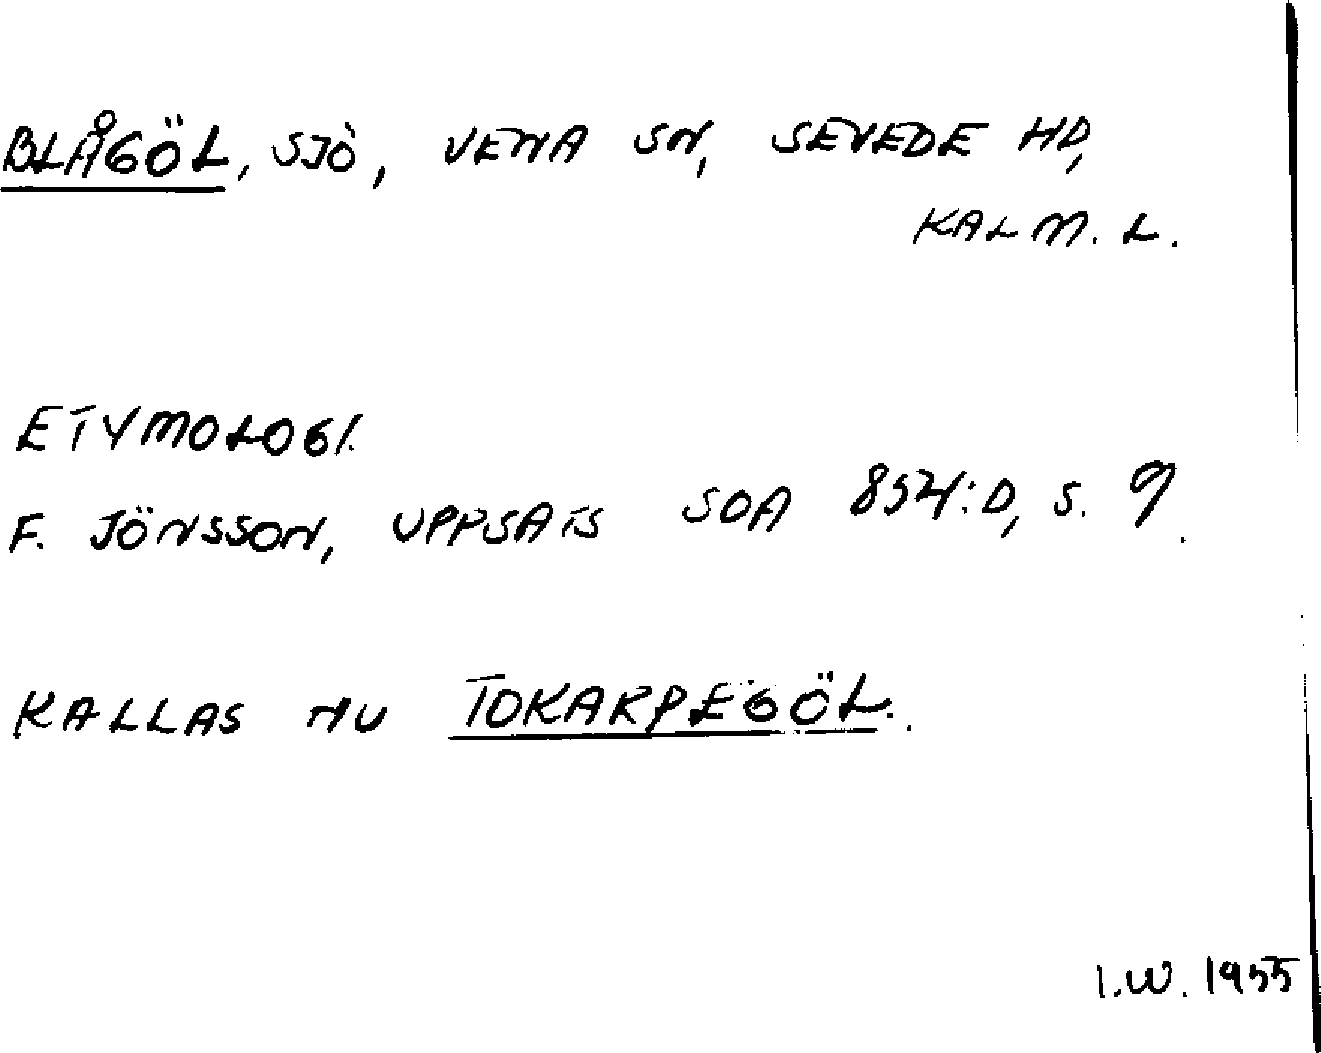 BLÅGÖL, SJÖ, VENA SN, SEVEDE HD,
KALM. L.
ETYMOLOGI.
F. JÖNSSON, UPPSATS SOA 8524:D, S. 9.
KALLAS NU TOKARPEGÖL.
I.W. 1955